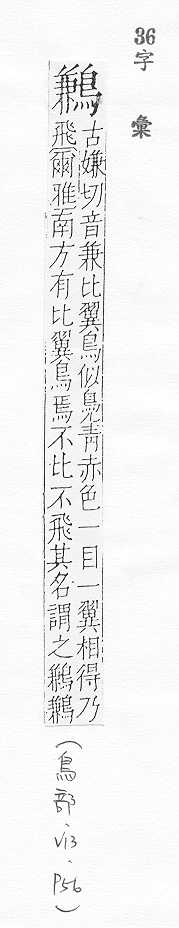 36
字彙
鶼
古嫌切音兼比翼鳥似鳧靑赤色一目一翼相得乃
飛爾雅南方有比翼鳥焉不比不飛其名謂之鶼鶼
(鳥部·V13·P56)